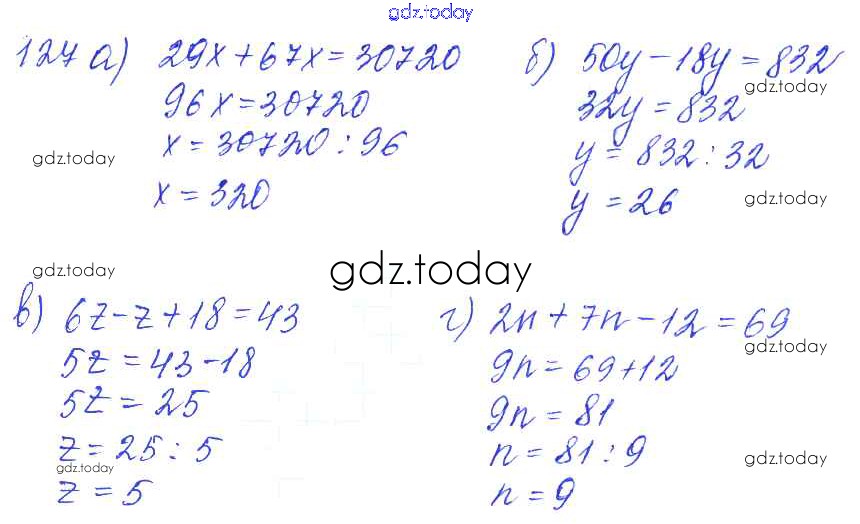 gdz.today
127 а) 29x + 67x = 30720
96x = 30720
x = 30720 : 96
x = 320
б) 50y - 18y = 832
32y = 832
y = 832 : 32
y = 26
gdz.today
gdz.today
gdz.today
gdz.today
gdz.today
в) 6z - z + 18 = 43
5z = 43 - 18
5z = 25
z = 25 : 5
z = 5
г) 2n + 7n - 12 = 69
9n = 69 + 12
9n = 81
n = 81 : 9
n = 9
gdz.today
gdz.today
gdz.today